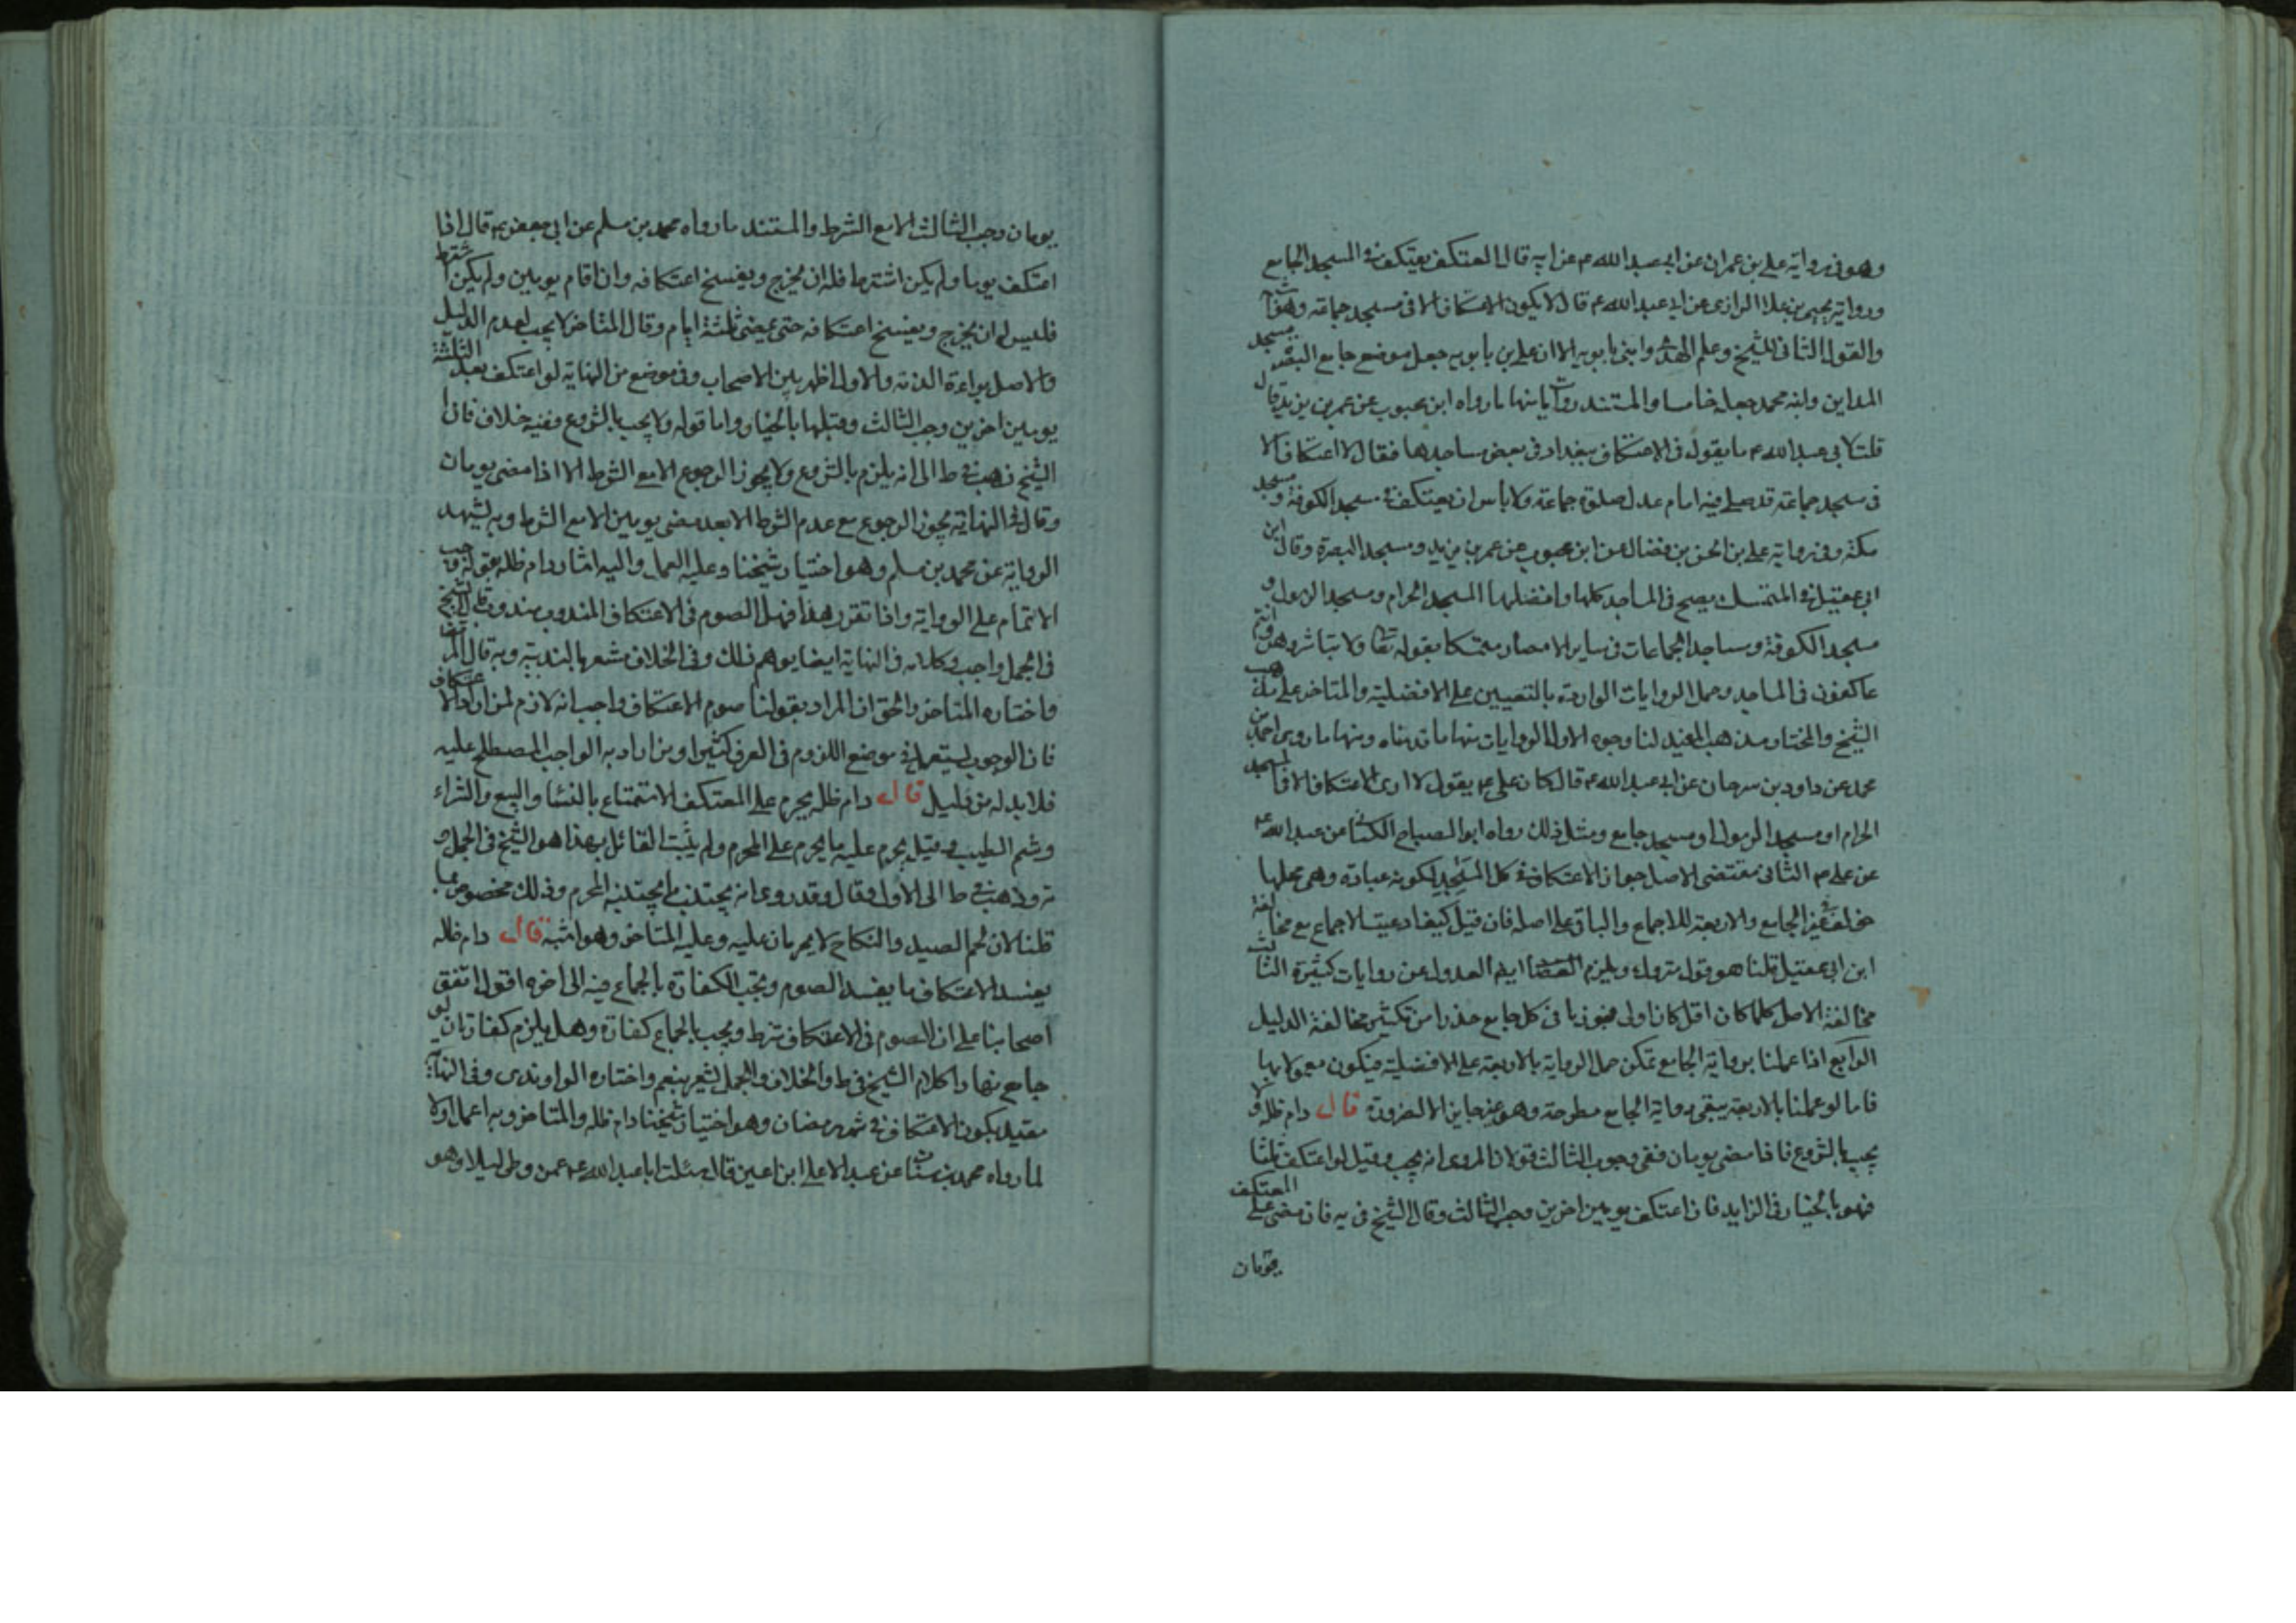 وهو فى رواية على بن عمران عن ابى عبد الله ع عن ابيه قال المعتكف يعتكف فى المسجد الجامع
ورواية يحيى بن علاا الرازى عن ابى عبد الله ع قال لا يكون الاعتكاف الا فى مسجد جماعة
والقول الثانى للشيخ وعلم الهدى وابنى بابويه الا ان على بن بابويه جعل موضع جامع البصرة مسجد
المداين وابنه محمد جعله خامسا والمستند روايات منها ما رواه ابن محبوب عن عمر بن يزيد قال
قلت لابى عبد الله ع ما يقول فى الاعتكاف ببغداد فى بعض مساجدها فقال لا اعتكاف الا
فى مسجد جماعة قد صلى فيه امام عدل صلوة جماعة ولا باس ان يعتكف فى مسجد الكوفة ومسجد
مكة وفى رواية على بن الحسن بن فضال عن ابن محبوب عن عمر بن يزيد ومسجد البصرة وقال ابن
ابى عقيل فى المتمسك يصح فى المساجد كلها وافضلها المسجد الحرام ومسجد الرسول و
مسجد الكوفة وساجد الجماعات فى ساير الامصار متمسكا بقوله تعا ولا تباشروهن وانتم
عاكفون فى المساجد وحمل الروايات الواردة بالتعيين على الافضلية والمتاخر على مذهب
الشيخ والمختار مذهب المفيد لنا وجوه الاول الروايات منها ما قدمناه ومنها ما روى احمد بن
محمد عن داود بن سرحان عن ابى عبد الله ع قال كان على ع يقول لا ارى الاعتكاف الا فى المسجد
الحرام او مسجد الرسول او مسجد جامع ومثل ذلك رواه ابو الصباح الكنانى عن عبد الله ع
عن على ع الثانى مقتضى الاصل جواز الاعتكاف فى كل المساجد لكونه عبادة وهى محلها
خولف فى غير الجامع والاربعة للاجماع والباقى على اصله فان قيل كيف ادعيت الاجماع مع مخالفة
ابن ابى عقيل قلنا هو قول متروك ويلزم ايضا العدول عن روايات كثيرة الثالث
مخالفة الاصل كلما كان اقل كان اولى فجوزنا فى كل جامع حذرا من تكثير مخالفة الدليل
الرابع اذا عملنا برواية الجامع تمكن حمل الرواية بالاربعة على الافضلية فيكون معمولا بها
فاما لو عملنا بالاربعة يبقى رواية الجامع مطروحة وهو غير جايز الا لضرورة قال دام ظله ولا
يجب بالشروع فاذا مضى يومان ففى وجوب الثالث قولان المروى انه يجب وقيل لو اعتكف ثلثا
فهو بالخيار فى الزايد فان اعتكف يومين اخرين وجب الثالث وقال الشيخ فى يه فان مضى على المعتكف
يومان
يومان وجب الثالث الا مع الشرط والمستند ما رواه محمد بن مسلم عن ابى جعفر ع قال اذا
اعتكف يوما ولم يكن اشترط فله ان يخرج ويفسخ اعتكافه وان اقام يومين ولم يكن اشترط
فليس له ان يخرج ويفسخ اعتكافه حتى يمضى ثلثة ايام وقال المتاخر لا يجب لعدم الدليل
والاصل براءة الذمة والاول اظهر بين الاصحاب وفى موضع من النهاية لو اعتكف بعد الثلثة
يومين اخرين وجب الثالث وقبلها بالخيار واما قوله ولا يجب بالشروع وفيه خلاف فان
الشيخ ذهب فى ط الى انه يلزم بالشروع ولا يجوز الرجوع الا مع الشرط الا اذا مضى يومان
وقال فى النهاية يجوز الرجوع مع عدم الشرط الا بعد مضى يومين الا مع الشرط وبه يشهد
الرواية عن محمد بن مسلم وهو اختيار شيخنا وعليه العمل واليه اشار دام ظله بقوله وجب
الاتمام على الرواية واذا تقرر هذا فهل الصوم فى الاعتكاف المندوب مندوب قال الشيخ
فى الجمل واجب وكلامه فى النهاية ايضا يوهم ذلك وفى الخلاف مشعر بالندبية وبه قال
واختاره المتاخر والحق ان المراد بقولنا صوم الاعتكاف واجب انه لازم لمن اراد الاعتكاف
فان الوجوب يستعمل فى موضع اللزوم فى العرف كثيرا ومن اراد به الواجب المصطلح عليه
فلا بد له من دليل قال دام ظله يحرم على المعتكف الاستمتاع بالنسا والبيع والشراء
وشم الطيب وقيل يحرم عليه ما يحرم على المحرم ولم يثبت القائل بهذا هو الشيخ فى الجمل و
يه وذهب فى ط الى الاول وقال وقد روى انه يجتنب ما يجتنبه المحرم وذلك مخصوص بما
قلنا لان لحم الصيد والنكاح لا يحرمان عليه وعليه المتاخر وهو اشبه قال دام ظله
يفسد الاعتكاف ما يفسد الصوم ويجب الكفارة بالجماع فيه الى اخره اقول اتفق
اصحابنا على ان الصوم فى الاعتكاف شرط ويجب بالجماع كفارة وهل يلزم كفارتان لو
جامع نهارا كلام الشيخ فى ط والخلاف والجمل يشعر بنعم واختاره الراوندى وفى النهاية
مقيد بكون الاعتكاف فى شهر رمضان وهو اختيار شيخنا دام ظله والمتاخر وبه اعمل اولا
لما رواه محمد بن سنان عن عبد الاعلى ابن اعين قال سئلت ابا عبد الله ع عمن وطى ليلا وهو